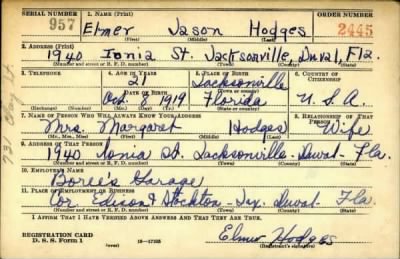 SERIAL NUMBER 1. NAME (Print) ORDER NUMBER
957 Elmer Jason Hodges 2445
(First) (Middle) (Last)
2. ADDRESS (Print)
1940 Ionia St. Jacksonville, Duval, Fla.
(Number and street or R. F. D. number) (Town) (County) (State)
3. TELEPHONE 4. AGE IN YEARS 5. PLACE OF BIRTH 6. COUNTRY OF CITIZENSHIP
21 Jacksonville
DATE OF BIRTH (Town or county)
Oct. 1919 Florida U.S.A.
(Exchange) (Number) (Mo.) (Day) (Yr.) (State or country)
7. NAME OF PERSON WHO WILL ALWAYS KNOW YOUR ADDRESS 8. RELATIONSHIP OF THAT PERSON
Mrs. Margaret Hodges Wife
(Mr., Mrs., Miss) (First) (Middle) (Last)
9. ADDRESS OF THAT PERSON
1940 Ionia St. Jacksonville - Duval - Fla.
(Number and street or R. F. D. number) (Town) (County) (State)
10. EMPLOYER'S NAME
Garage
11. PLACE OF EMPLOYMENT OR BUSINESS
Cor. Edison & Stockton - Jax. Duval Fla.
(Number and street or R. F. D. number) (Town) (County) (State)
I AFFIRM THAT I HAVE VERIFIED ABOVE ANSWERS AND THAT THEY ARE TRUE.
REGISTRATION CARD
D. S. S. Form 1 16—17105 Elmer Hodges
(Registrant's signature)